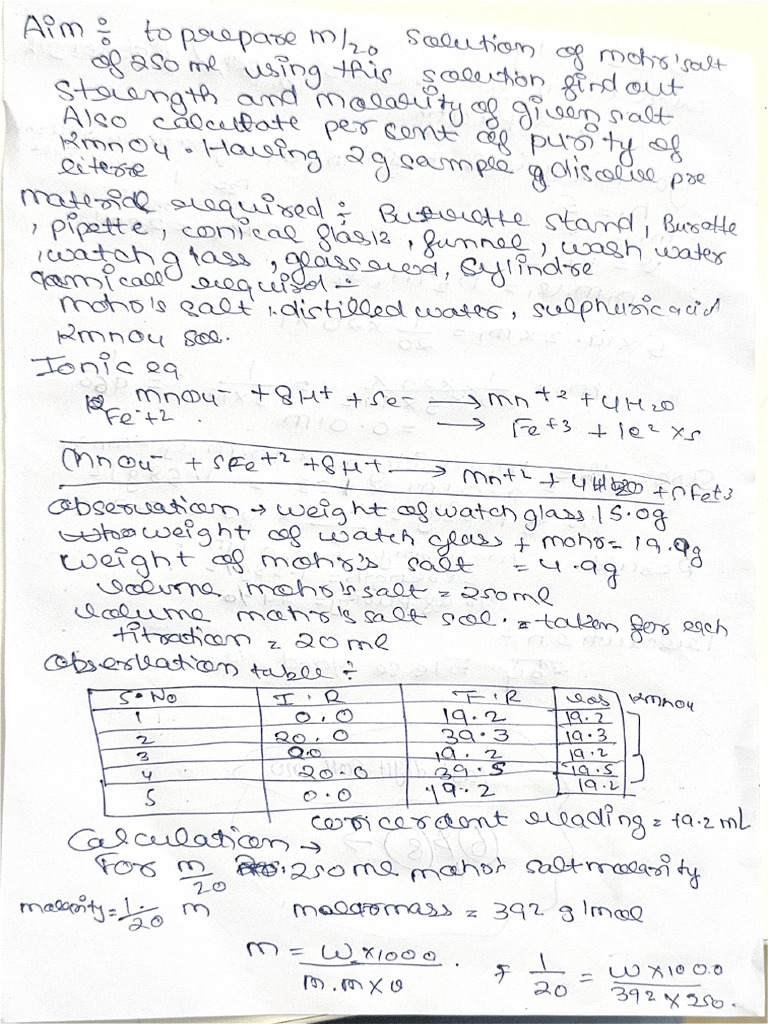 Aim ÷ to prepare m/20 Solution of mohr'salt
of 250 ml using this solution find out
Strength and molarity of given salt
Also calculate per cent of purity of
Kmno4. Having 2g sample g disolve pre
literre
material required ÷ Burette stand, Burette
, pipette, conical glass, funnel, wash water
, watch glass, glass rod, Sylindre
Camicall required ÷
mohr's salt, distilled water, sulphuric acid
Kmno4 sol.
Ionic eq
mno4- + 8H+ + 5e- → mn+2 + 4H2O
Fe+2 → Fe+3 + 1e- x5
mno4- + 5Fe+2 + 8H+ → mn+2 + 4H2O + 5Fe+3
Observation → weight of watch glass 15.0g
weight of watch glass + mohr = 19.9g
weight of mohr's salt = 4.9g
volume mohr's salt = 250ml
volume mohr's salt sol. = taken for each
titration = 20 ml
Observation table ÷
S.No I.R F.R vol Kmno4
1 0.0 19.2 19.2
2 20.0 39.3 19.3
3 0.0 19.2 19.2
4 20.0 39.5 19.5
5 0.0 19.2 19.2
concordent reading = 19.2 mL
Calculation →
For m/20 250 ml mohr salt molarity
molarity = 1/20 m molar mass = 392 g/mol
m = w x 1000 / m.m x v . 1/20 = w x 1000 / 392 x 250.